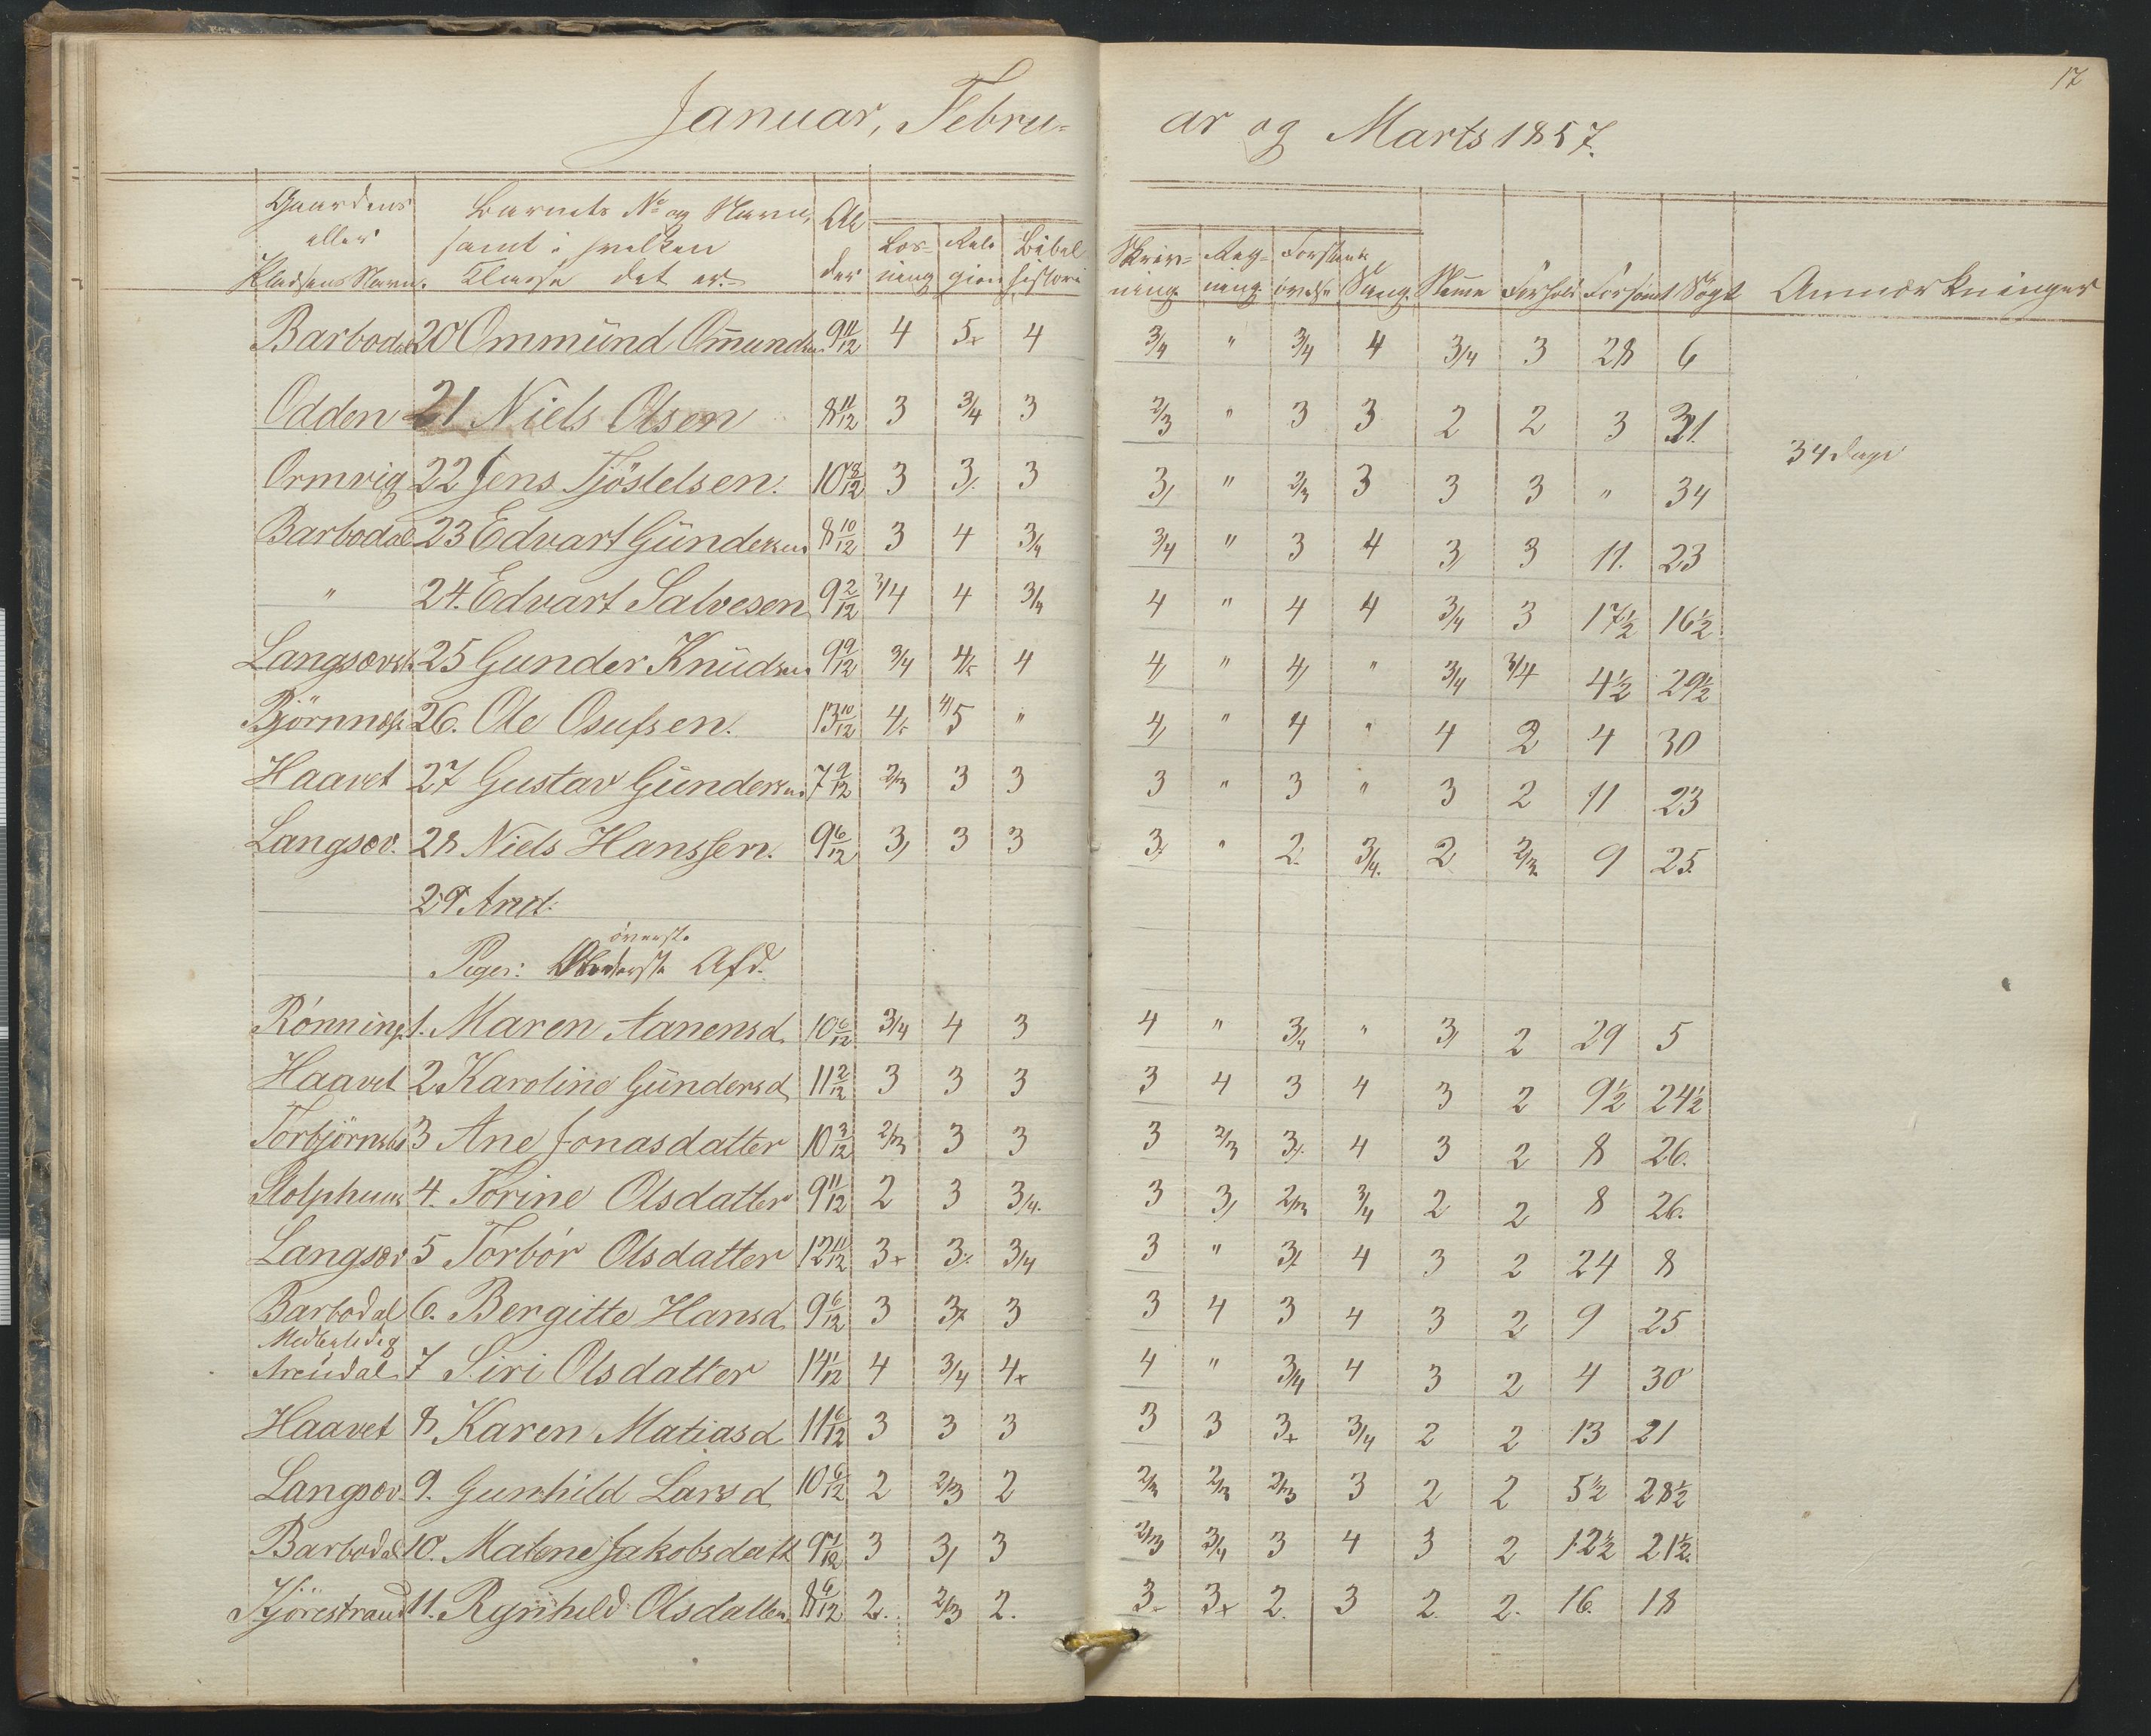 17
Januar, Febru-
ar og Marts 1857.
Gaardens eller Pladsens Navn. Barnets No og Navn, samt i hvilken Klasse det er. Al der Læs- ning Reli gion Bibel historie Skriv- ning Reg- ning Forstands øvelse Sang. Nemme Forhold Forsømt Søgt Anmærkninger
Barbodal 20 Ommund Omunds. 9 11/12 4 5+ 4 3/4 " 3/4 4 3/4 3 28 6
Odden 21 Niels Olsen 8 11/12 3 3/4 3 2/3 " 3 3 2 2 3 31.
34 Dage
Ormvig 22 Jens Tjöstelsen. 10 8/12 3 3/. 3 3/ " 2/3 3 3 3 " 34
Barbodal 23 Edvart Gundersen 8 10/12 3 4 3/4 3/4 " 3 4 3/ 3 11. 23
" 24. Edvart Salvesen 9 2/12 3/4 4 3/4 4 " 4 4 3/4 3 17½ 16½
Langsæv 25 Gunder Knudsen 9 9/12 3/4 4/5 4 4/ " 4/ " 3/4 3/4 4½ 29½
Björnnæs 26. Ole Osufsen. 13 10/12 4/5 4/5 " 4/ " 4 " 4 2 4 30
Haavet 27 Gustav Gundersen 7 9/12 2/3 3 3 3 " 3 " 3 2 11 23
Langsæv. 28 Niels Hanssen. 9 6/12 3/ 3 3 3/. " 2. 3/4. 2 2/3 9 25.
29 And:
øverste
Piger: Afd.
Rönning. 1. Maren Aanensd. 10 6/12 3/4 4 3 4 " 3/4 " 3/ 2 29 5
Haavet 2 Karoline Gundersd. 11 2/12 3 3 3 3 4 3 4 3 2 9½ 24½
Torbjörnsbu 3 Ane Jonasdatter 10 3/12 2/3 3 3 3 2/3 3/. 4 3 2 8 26.
Stolphuus 4. Torine Olsdatter 9 11/12 2 3 3/4. 3 3/ 2/3 3/4 2 2 8 26.
Langsæv 5 Torbór Olsdatter 12 11/12 3+ 3/. 3/4 3 " 3+ 4 3 2 24 8
Barbodal 6. Bergitte Hansd. 9 6/12 3 3+ 3 3 4 3 4 3 2 9 25
Arendal 7 Siri Olsdatter 14 1/12 4 3/4 4+ 4 " 3/4 4 3 2 4 30
Haavet 8 Karen Matiasd. 11 6/12 3 3 3 3 3 3+ 3/4 2 2 13 21
Langsæv. 9. Gunhild Larsd. 10 6/12 2 2/3 2 2/3 2/3 2/3 3 2 2 5½ 28½
Barbodal 10. Malene Jakobsdatt. 9 1/12 3 3/ 3 2/3 3/4 3 4 3 2 12½ 21½.
Kjörestrand 11. Rgnhild Olsdatter. 8 9/12 2. 2/3 2. 3- 3+ 2. 3 2. 2. 16. 18